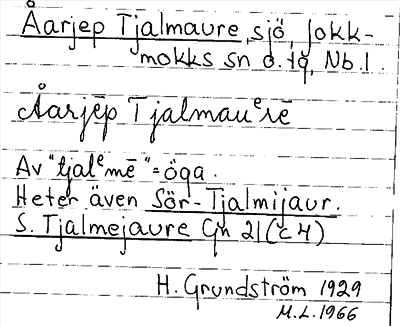 Åarjep Tjalmaure, sjö, Jokk-
mokks sn o. tg, Nb.l.
Åarjēp Tjalmauᵉrē
Av "tjalᵉmē" = öga.
Heter även Sör-Tjalmijaur.
S. Tjalmejaure Gh 21 (c 4)
H. Grundström 1929
M.L. 1966